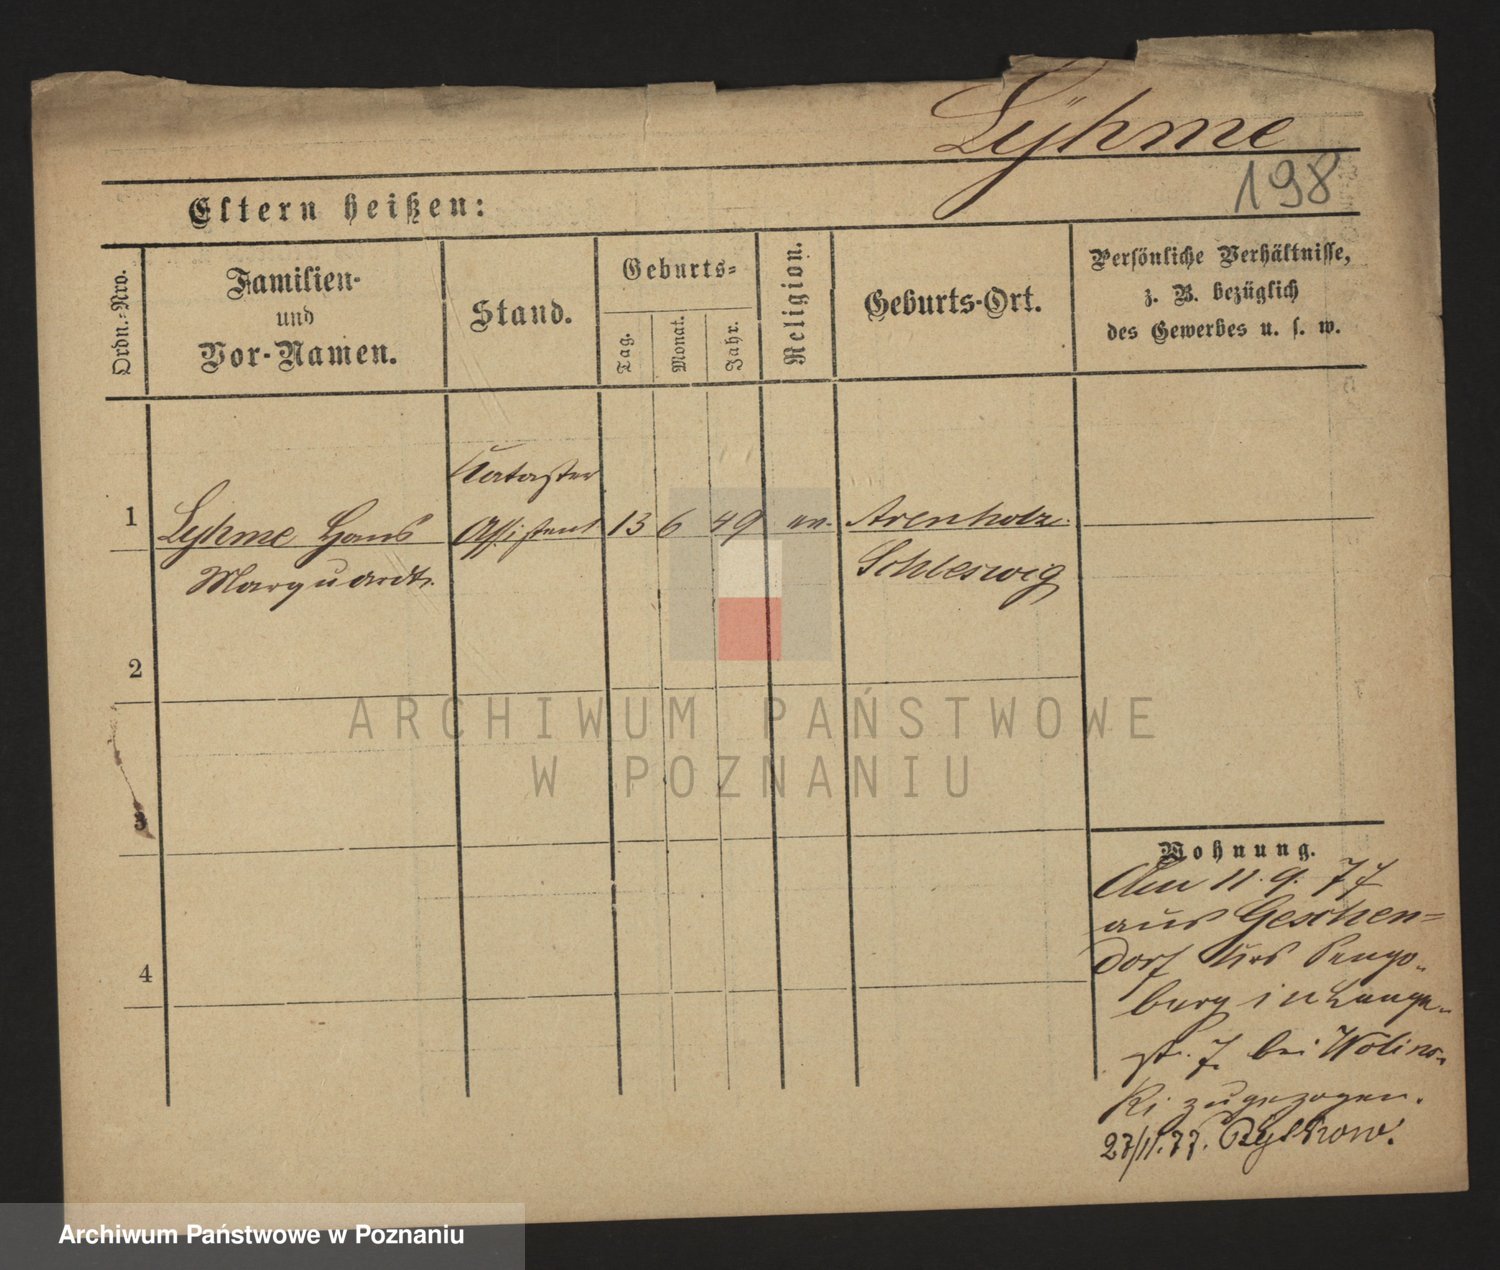 Lÿhme
198
Eltern heißen:
Ordn.-Nro.
Familien-
und
Vor-Namen.
Stand.
Geburts-
Tag.
Monat.
Jahr.
Religion.
Geburts-Ort.
Persönliche Verhältnisse,
z. B. bezüglich
des Gewerbes u. s. w.
Kataster
1 Lyhme Hans Assistent 13 6 49 ev. Arenholz
Marquardt. Schleswig
2
3
4
ARCHIWUM PAŃSTWOWE
W POZNANIU
Wohnung.
Am 11. 9. 77
aus Geschen=
dorf Krs
berg in Lange-
str. 7. bei Wolins-
ki zugezogen.
27/11. 77.
Archiwum Państwowe w Poznaniu